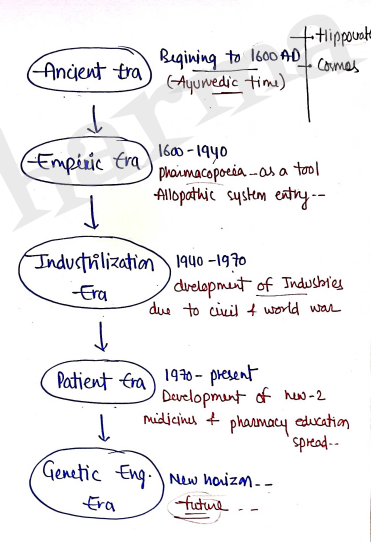 Hippovate
Cosmos
Ancient Era
Begining to 1600 AD
(Ayurvedic time)
Empiric Era
1600-1940
Pharmacopoeia - as a tool
Allopathic system entry--
Industrilization
Era
1940-1970
development of Industries
due to civil & world war
Patient Era
1970- present
Development of new-2
midicines & pharmacy education
spread--
Genetic Eng.
Era
New horizon--
future - - -